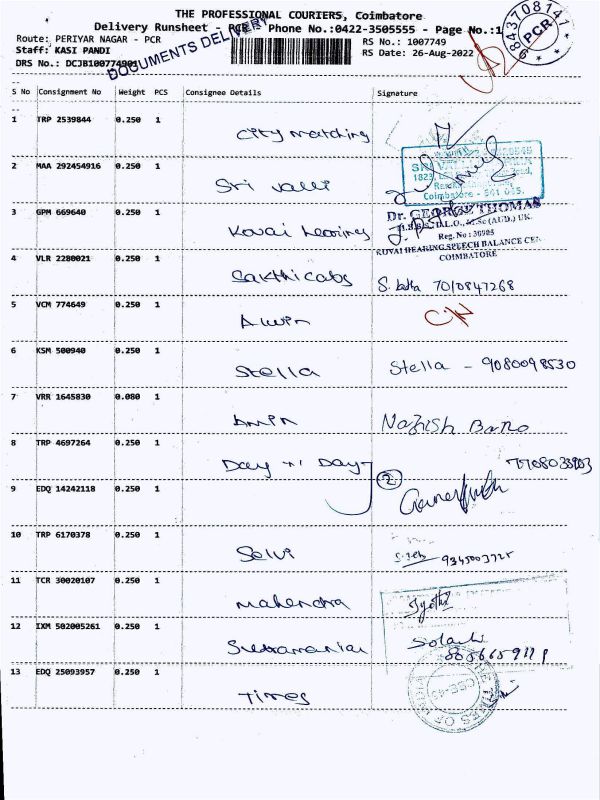 THE PROFESSIONAL COURIERS, Coimbatore
Delivery Runsheet - PCR Phone No.:0422-3505555 - Page No.:1
Route: PERIYAR NAGAR - PCR RS No.: 1007749
Staff: KASI PANDI RS Date: 26-Aug-2022
DRS No.: DCJB1007749
DOCUMENTS DELIVERY
PCR
S No Consignment No Weight PCS Consignee Details Signature
1 TRP 2539844 0.250 1 City matching
2 MAA 292454916 0.250 1 Sri valli
Coimbatore - 641 045.
3 GPM 669640 0.250 1 Kovai hearing
Dr. GEORGE THOMAS
Reg. No : 30905
KOVAI HEARING SPEECH BALANCE CEN
COIMBATORE
4 VLR 2280021 0.250 1 Sakthi cabs 7010847268
5 VCM 774649 0.250 1 Alwin
6 KSM 500940 0.250 1 Stella Stella - 9080098530
7 VRR 1645830 0.080 1 Amin Nazish Bano
8 TRP 4697264 0.250 1 Day n Day
2
9 EDQ 14242118 0.250 1
10 TRP 6170378 0.250 1 Selvi 9345003725
11 TCR 30020107 0.250 1 Mahendra Jyothi
12 IXM 502005261 0.250 1 Subramaniar
13 EDQ 25093957 0.250 1 Times